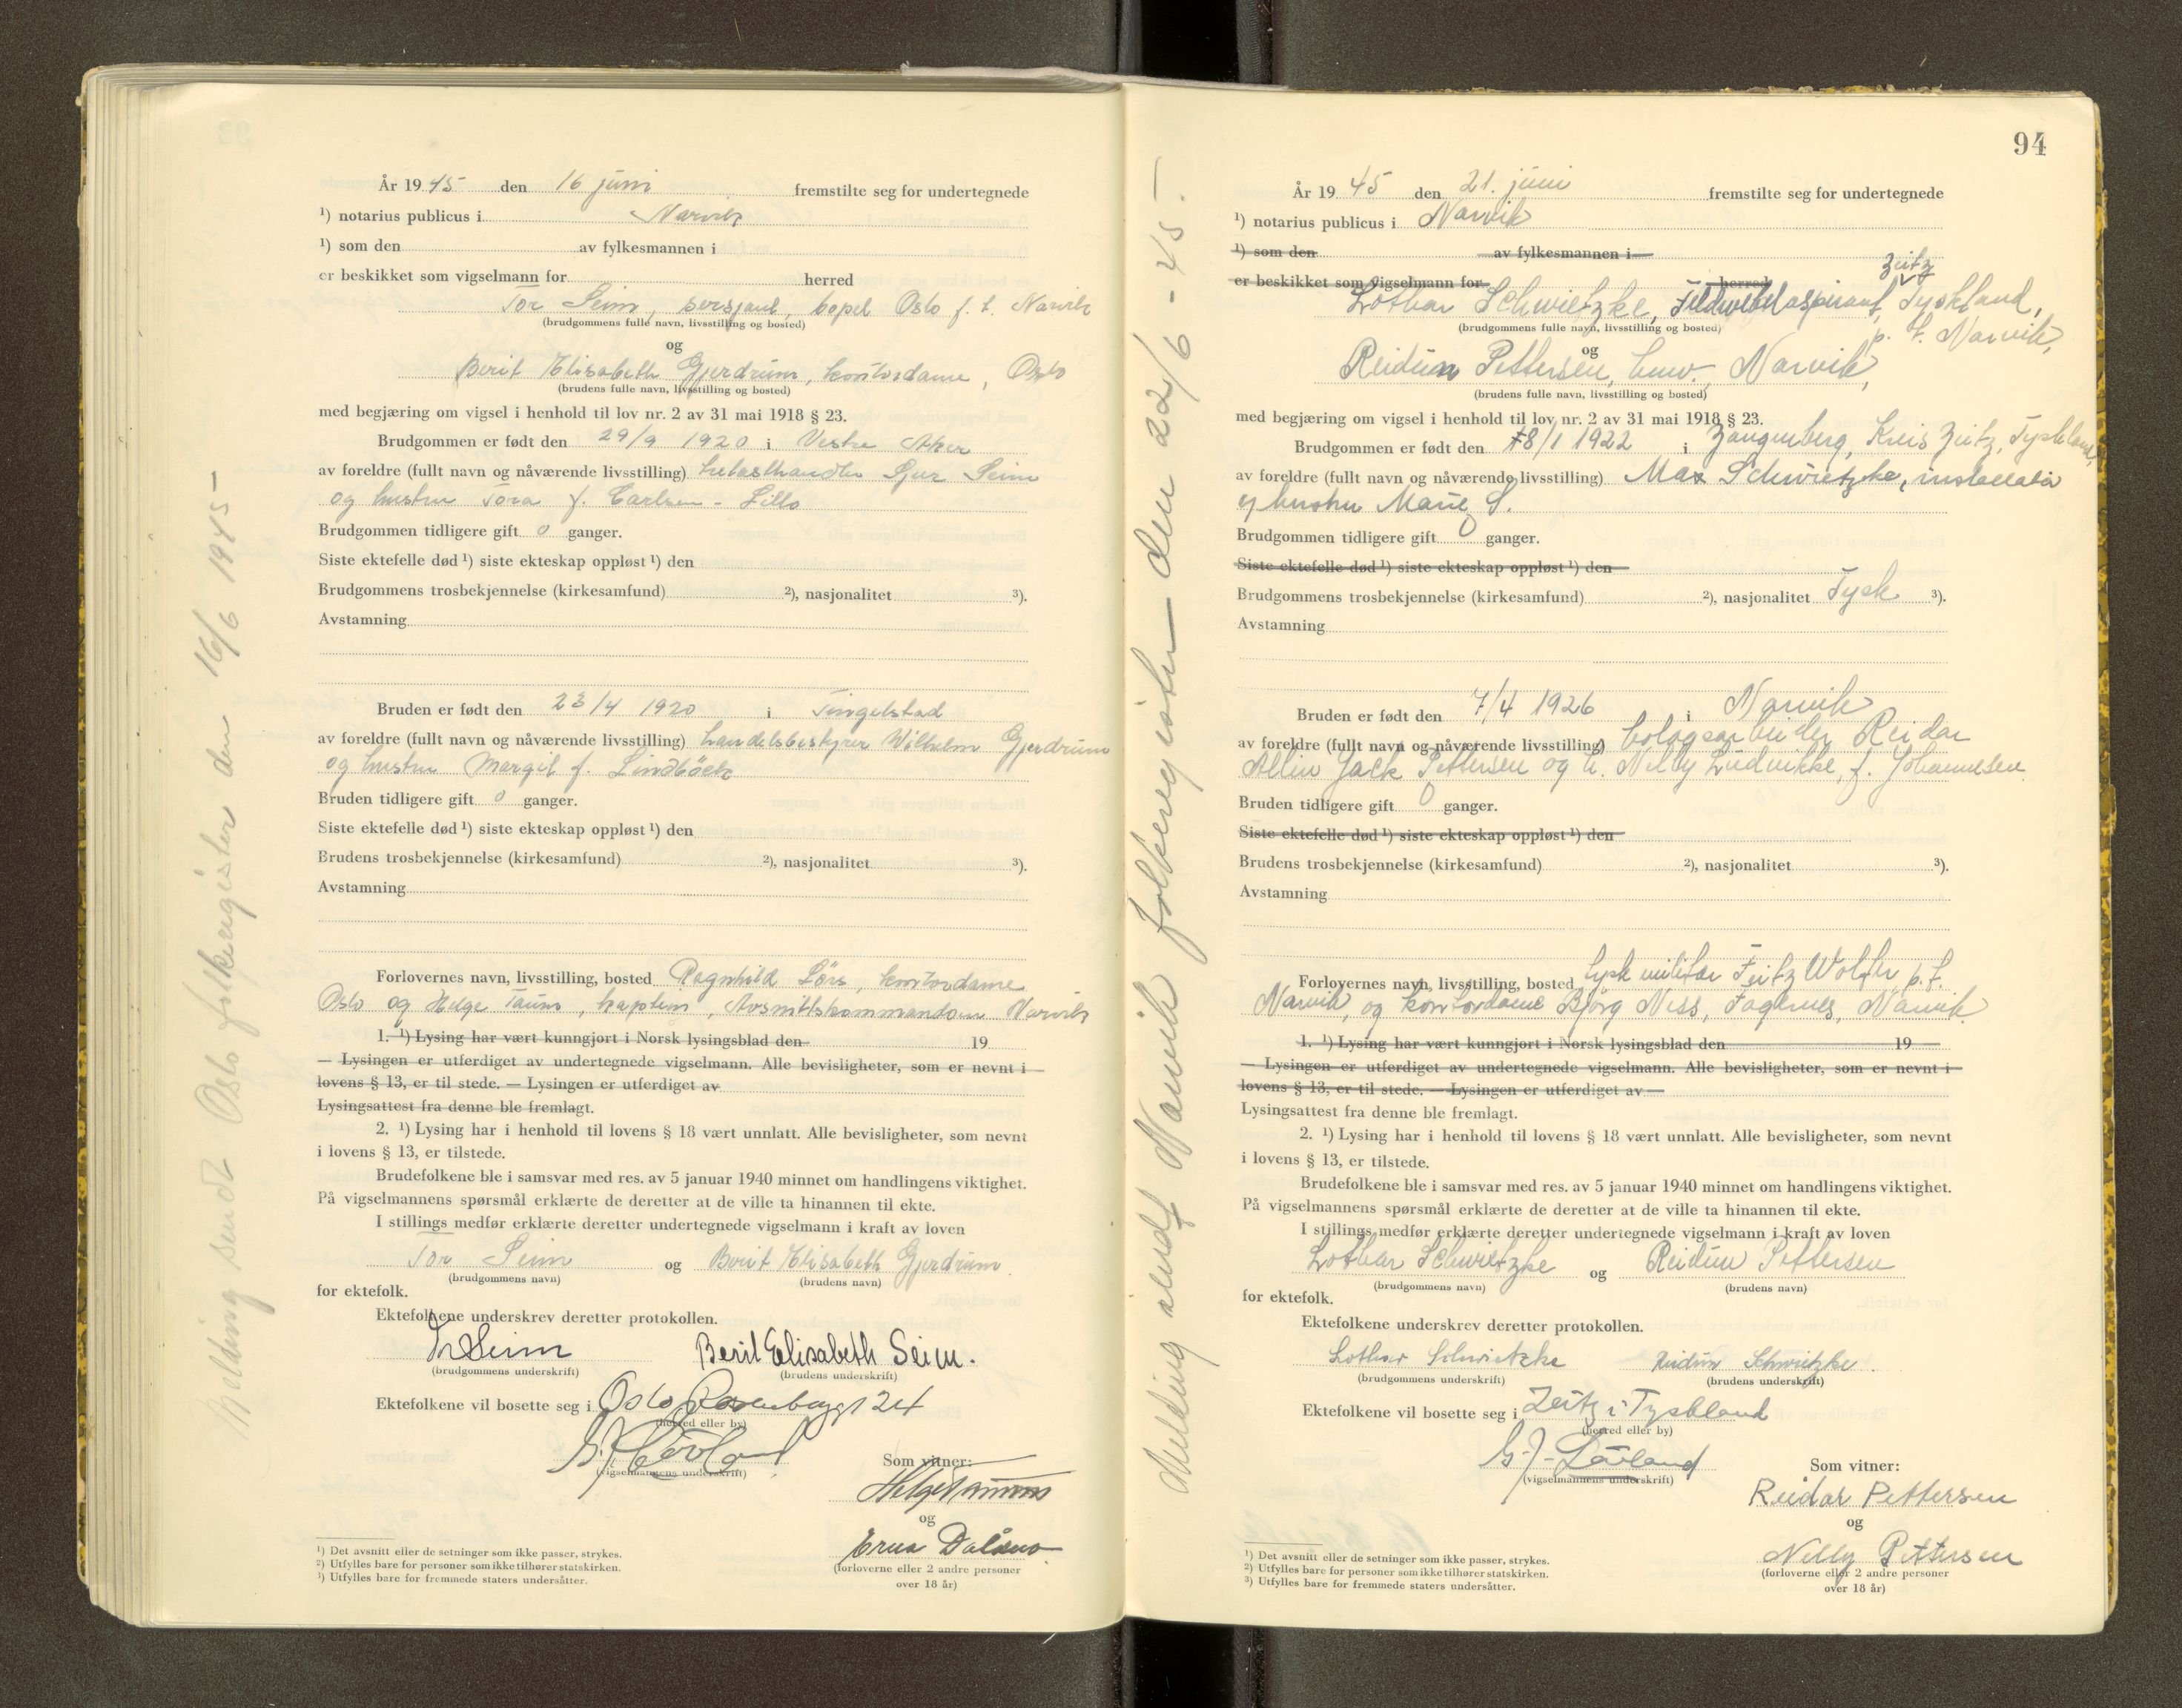 År 1945 den 16 juni fremstilte seg for undertegnede
¹) notarius publicus i Narvik
¹) som den av fylkesmannen i
er beskikket som vigselmann for herred
Tor Seim, sersjant, bopel Oslo f. t. Narvik
(brudgommens fulle navn, livsstilling og bosted)
og
Berit Elisabeth Gjerdrum, kontordame, Oslo
(brudens fulle navn, livsstilling og bosted)
med begjæring om vigsel i henhold til lov nr. 2 av 31 mai 1918 § 23.
Brudgommen er født den 29/9 1920 i Vestre Aker
av foreldre (fullt navn og nåværende livsstilling) Sjur Seim
og hustru Tora f. Carlsen - Lillo
Brudgommen tidligere gift 0 ganger.
Siste ektefelle død ¹) siste ekteskap oppløst ¹) den
Brudgommens trosbekjennelse (kirkesamfund) ²), nasjonalitet ³).
Avstamning
Bruden er født den 23/4 1920 i Tingelstad
av foreldre (fullt navn og nåværende livsstilling) handelsbestyrer Wilhelm Gjerdrum
og hustru Margit f. Lindböck
Bruden tidligere gift 0 ganger.
Siste ektefelle død ¹) siste ekteskap oppløst ¹) den
Brudens trosbekjennelse (kirkesamfund) ²), nasjonalitet ³).
Avstamning
Forlovernes navn, livsstilling, bosted Ragnhild Sørs, kontordame
Oslo og Helge Taum, kaptein, Avsnittskommandoen Narvik
1. ¹) Lysing har vært kunngjort i Norsk lysingsblad den 19
— Lysingen er utferdiget av undertegnede vigselmann. Alle bevisligheter, som er nevnt i
lovens § 13, er til stede. — Lysingen er utferdiget av
Lysingsattest fra denne ble fremlagt.
2. ¹) Lysing har i henhold til lovens § 18 vært unnlatt. Alle bevisligheter, som nevnt
i lovens § 13, er tilstede.
Brudefolkene ble i samsvar med res. av 5 januar 1940 minnet om handlingens viktighet.
På vigselmannens spørsmål erklærte de deretter at de ville ta hinannen til ekte.
I stillings medfør erklærte deretter undertegnede vigselmann i kraft av loven
Tor Seim og Berit Elisabeth Gjerdrum
(brudgommens navn) (brudens navn)
for ektefolk.
Ektefolkene underskrev deretter protokollen.
Tor Seim Berit Elisabeth Seim.
(brudgommens underskrift) (brudens underskrift)
Ektefolkene vil bosette seg i Oslo, Rosenborggt 24
(herred eller by)
(vigselmannens underskrift)
Som vitner:
og
Erna
(forloverne eller 2 andre personer
over 18 år)
¹) Det avsnitt eller de setninger som ikke passer, strykes.
²) Utfylles bare for personer som ikke tilhører statskirken.
³) Utfylles bare for fremmede staters undersåtter.
Melding sendt Oslo folkeregister den 16/6 1945 -
94
År 1945 den 21. juni fremstilte seg for undertegnede
¹) notarius publicus i Narvik
¹) som den av fylkesmannen i
er beskikket som vigselmann for herred
Zeitz
Lothar Schwietzke, Feldwebelaspirant, Tyskland,
(brudgommens fulle navn, livsstilling og bosted)
p. t. Narvik,
og
Reidun Pettersen, husv., Narvik,
(brudens fulle navn, livsstilling og bosted)
med begjæring om vigsel i henhold til lov nr. 2 av 31 mai 1918 § 23.
Brudgommen er født den 8/1 1922 i Zangenberg, Kreis Zeitz, Tyskland,
av foreldre (fullt navn og nåværende livsstilling) Max Schwietzke, installatør
og hustru Marie S.
Brudgommen tidligere gift 0 ganger.
Siste ektefelle død ¹) siste ekteskap oppløst ¹) den
Brudgommens trosbekjennelse (kirkesamfund) ²), nasjonalitet Tysk ³).
Avstamning
Bruden er født den 7/4 1926 i Narvik
av foreldre (fullt navn og nåværende livsstilling) bolagsarbeider Reidar
Allin Jack Pettersen og h. Nelly Ludvikke, f. Johannesen
Bruden tidligere gift 0 ganger.
Siste ektefelle død ¹) siste ekteskap oppløst ¹) den
Brudens trosbekjennelse (kirkesamfund) ²), nasjonalitet ³).
Avstamning
Forlovernes navn, livsstilling, bosted tysk militær Fritz Wolter, p.t.
Narvik, og kontordame Bjørg Niss, Fagernes, Narvik.
1. ¹) Lysing har vært kunngjort i Norsk lysingsblad den 19
— Lysingen er utferdiget av undertegnede vigselmann. Alle bevisligheter, som er nevnt i
lovens § 13, er til stede. — Lysingen er utferdiget av
Lysingsattest fra denne ble fremlagt.
2. ¹) Lysing har i henhold til lovens § 18 vært unnlatt. Alle bevisligheter, som nevnt
i lovens § 13, er tilstede.
Brudefolkene ble i samsvar med res. av 5 januar 1940 minnet om handlingens viktighet.
På vigselmannens spørsmål erklærte de deretter at de ville ta hinannen til ekte.
I stillings medfør erklærte deretter undertegnede vigselmann i kraft av loven
Lothar Schwietzke og Reidun Pettersen
(brudgommens navn) (brudens navn)
for ektefolk.
Ektefolkene underskrev deretter protokollen.
Lothar Schwietzke Reidun Schwietzke.
(brudgommens underskrift) (brudens underskrift)
Ektefolkene vil bosette seg i Zeitz i Tyskland
(herred eller by)
(vigselmannens underskrift)
Som vitner:
Reidar Pettersen
og
Nelly Pettersen
(forloverne eller 2 andre personer
over 18 år)
¹) Det avsnitt eller de setninger som ikke passer, strykes.
²) Utfylles bare for personer som ikke tilhører statskirken.
³) Utfylles bare for fremmede staters undersåtter.
Melding sendt Narvik folkeregister den 22/6 - 45 -